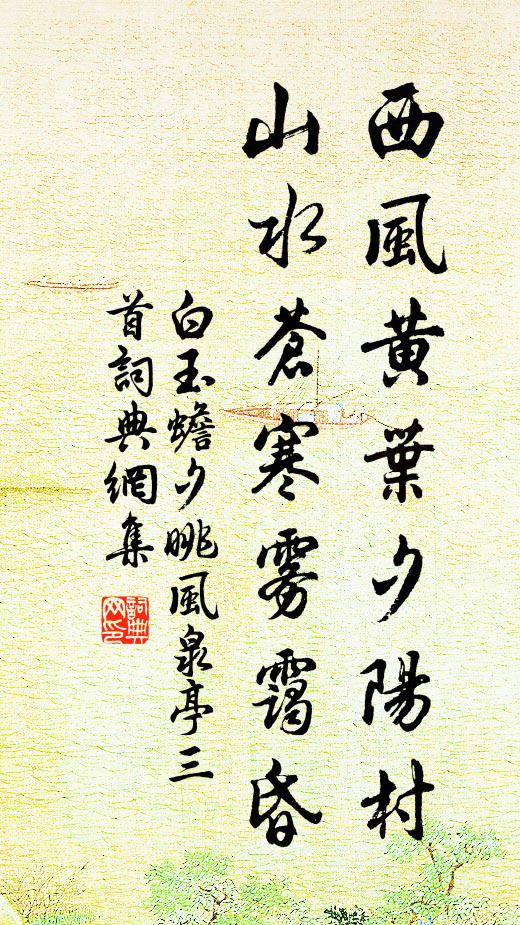 西風黃葉夕陽村
山水蒼寒雾靄昏
白玉蟾夕眺風泉亭三
首詞典網集
詞典
网印